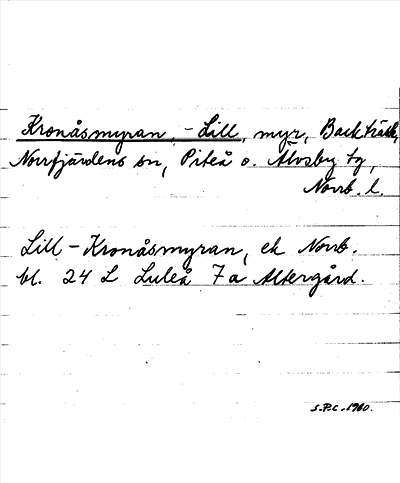 Kronåsmyran, -Lill, myr, Backträsk,
Norrfjärdens sn, Piteå o. Älvsby tg,
Norrb. l.
Lill-Kronåsmyran, ek Norrb.
bl. 24 L Luleå 7a Altergård.
S.P.C. 1960.